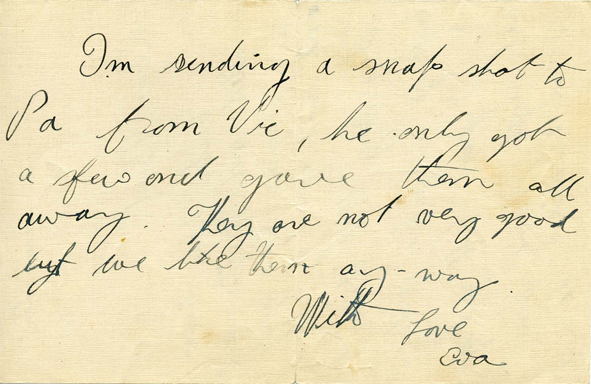 I'm sending a snap shot to
Pa from Vic, he only got
a few and gave them all
away. They are not very good
but we like them any-way.
With love
Eva